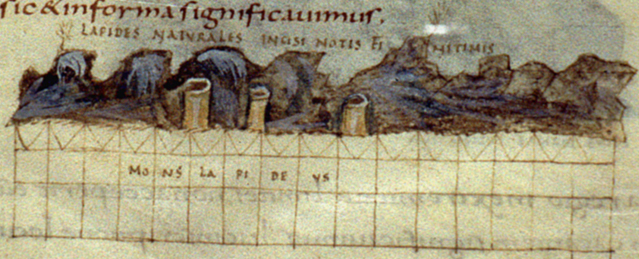 sic & informa significavimus.
LAPIDES NATVRALES INCISI NOTIS FINITIMIS
MONS LAPIDEVS